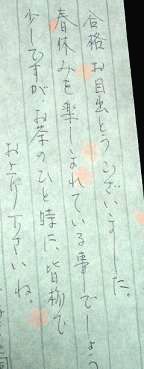 合格お目出とうございました。
春休みを楽しまれている事でしょう
少しですが、お茶のひと時に、皆栃で
お上り下さい ね。